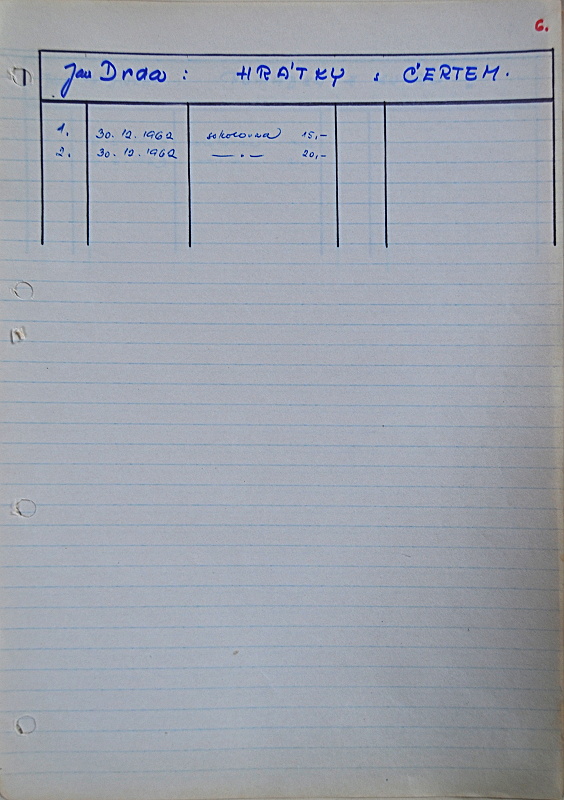 6.
Jan Drda : HRÁTKY s ČERTEM.
1. 30. 12. 1962 sokolovna 15,-
2. 30. 12. 1962 — . — 20,-